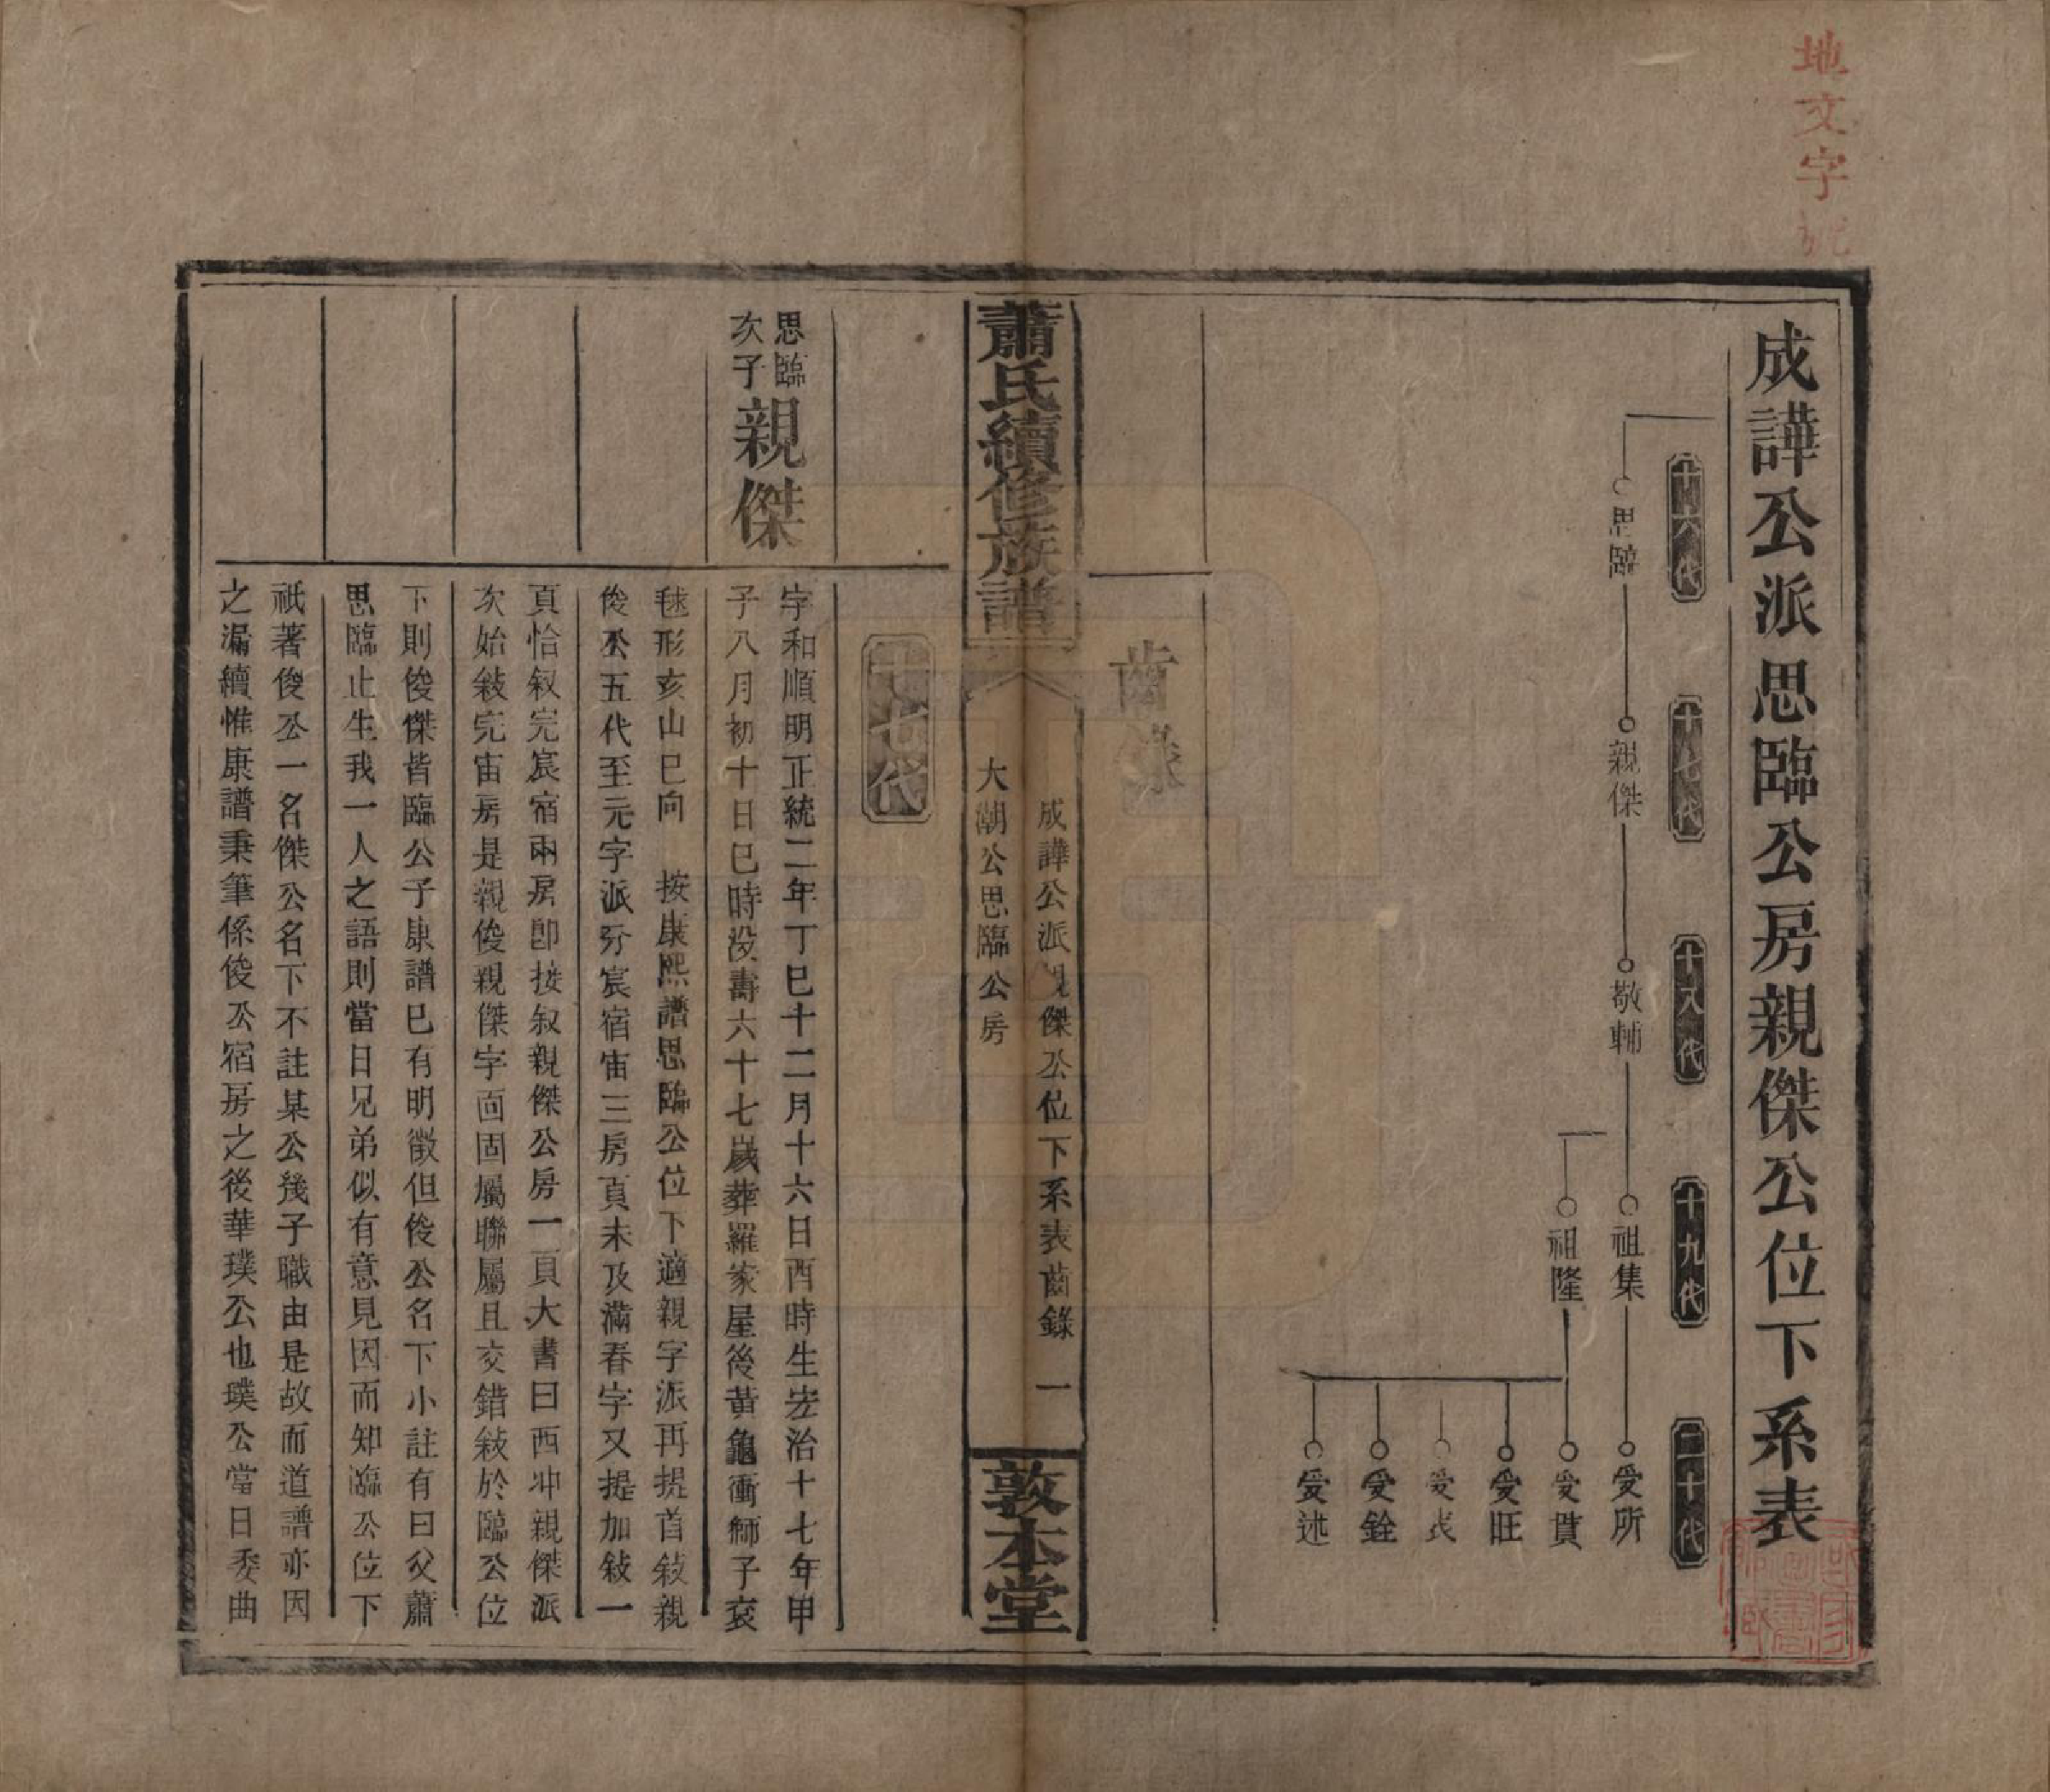 地文字號
成譁公派思臨公房親傑公位下系表
十六代
十七代
十八代
十九代
二十代
思臨
親傑
敬輔
祖集
受所
祖隆
受貫
受旺
受銓
受述
齒錄
蕭氏續修族譜
成譁公派親傑公位下系表齒錄 一
大潮公思臨公房
敦本堂
十七代
思臨
次子
親傑
字和順明正統二年丁巳十二月十六日酉時生宏治十七年甲
子八月初十日巳時沒壽六十七歲葬羅家屋後黃龜衝獅子衮
毬形亥山巳向 按康熙譜思臨公位下適親字派再提首敍親
俊公五代至元字派分宸宿宙三房頁未及滿春字又提加敍一
頁恰叙完宸宿兩房卽接叙親傑公房一頁大書曰西冲親傑派
次始敍完宙房是親俊親傑字面固屬聯屬且交錯敍於臨公位
下則俊傑皆臨公子康譜已有明徵但俊公名下小註有曰父蕭
思臨止生我一人之語則當日兄弟似有意見因而知臨公位下
祇著俊公一名傑公名下不註某公幾子職由是故而道譜亦因
之漏續惟康譜秉筆係俊公宿房之後華璞公也璞公當日委曲